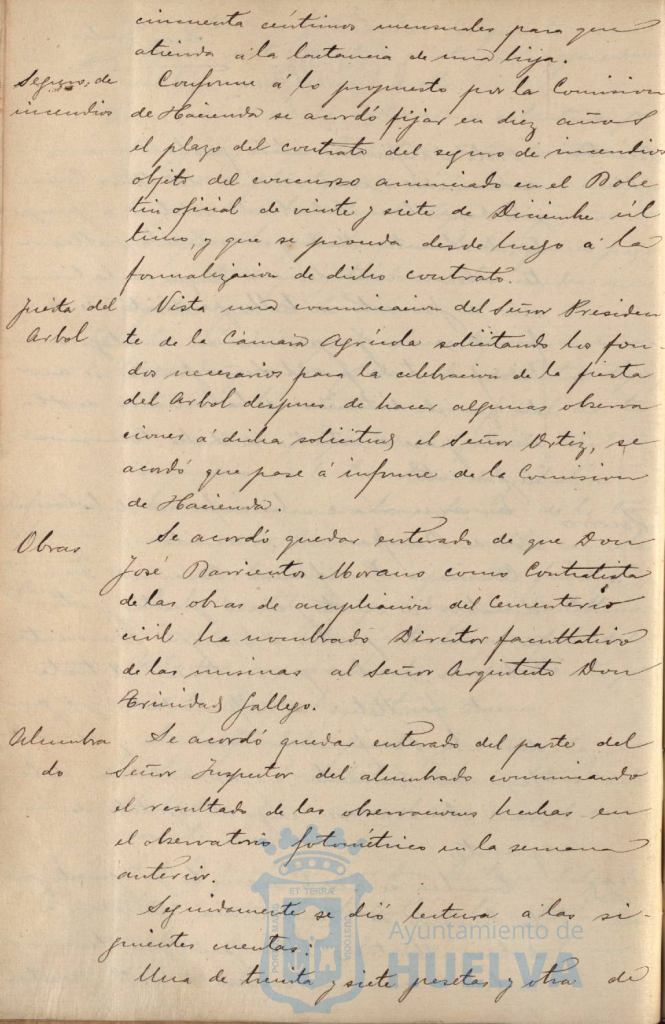 cincuenta céntimos mensuales para que
atienda á la lactancia de una hija.
Seguro de
incendios
Conforme á lo propuesto por la Comision
de Hacienda se acordó fijar en diez años
el plazo del contrato del seguro de incendios
objeto del concurso anunciado en el Bole
tin oficial de veinte y siete de Diciembre úl
timo, y que se proceda desde luego á la
formalizacion de dicho contrato.
Fiesta del
Arbol
Vista una comunicacion del Señor Presiden
te de la Cámara Agrícola solicitando los fon-
dos necesarios para la celebracion de la fiesta
del Arbol despues de hacer algunas observa
ciones á dicha solicitud el Señor Ortiz, se
acordó que pase á informe de la Comision
de Hacienda.
Obras
Se acordó quedar enterado de que Don
José Barrientos Morano como Contratista
de las obras de ampliacion del Cementerio
civil ha nombrado Director facultativo
de las mismas al Señor Arquitecto Don
Trinidad Gallego.
Alumbra
do
Se acordó quedar enterado del parte del
Señor Inspector del alumbrado comunicando
el resultado de las observaciones hechas en
el observatorio fotométrico en la semana
anterior.
Seguidamente se dió lectura á las si-
guientes cuentas:
Una de treinta y siete pesetas y otra de
PORTUS MARIS
ET TERRÆ
CUSTODIA
Ayuntamiento de
HUELVA